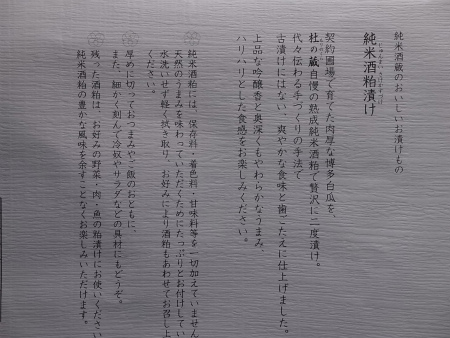 純米酒蔵のおいしいお漬けもの
純米酒粕漬け
じゅんまい さけかすづけ
契約圃場で育てた肉厚な博多白瓜を、
杜の蔵自慢の熟成純米酒粕で贅沢に二度漬け。
代々伝わる手づくりの手法で
古漬けにはない、爽やかな食味と歯ごたえに仕上げました。
上品な吟醸香と奥深くもやわらかなうまみ、
ハリハリとした食感をお楽しみください。
純米酒粕には、保存料・着色料・甘味料等を一切加えていません
天然のうまみを味わっていただくためにたっぷりとお付けしてい
水洗いせず軽く拭き取り、お好みにより酒粕もあわせてお召し上
ください。
厚めに切っておつまみやご飯のおともに、
また、細かく刻んで冷奴やサラダなどの具材にもどうぞ。
残った酒粕は、お好みの野菜・肉・魚の粕漬けにお使いください
純米酒粕の豊かな風味を余すことなくお楽しみいただけます。